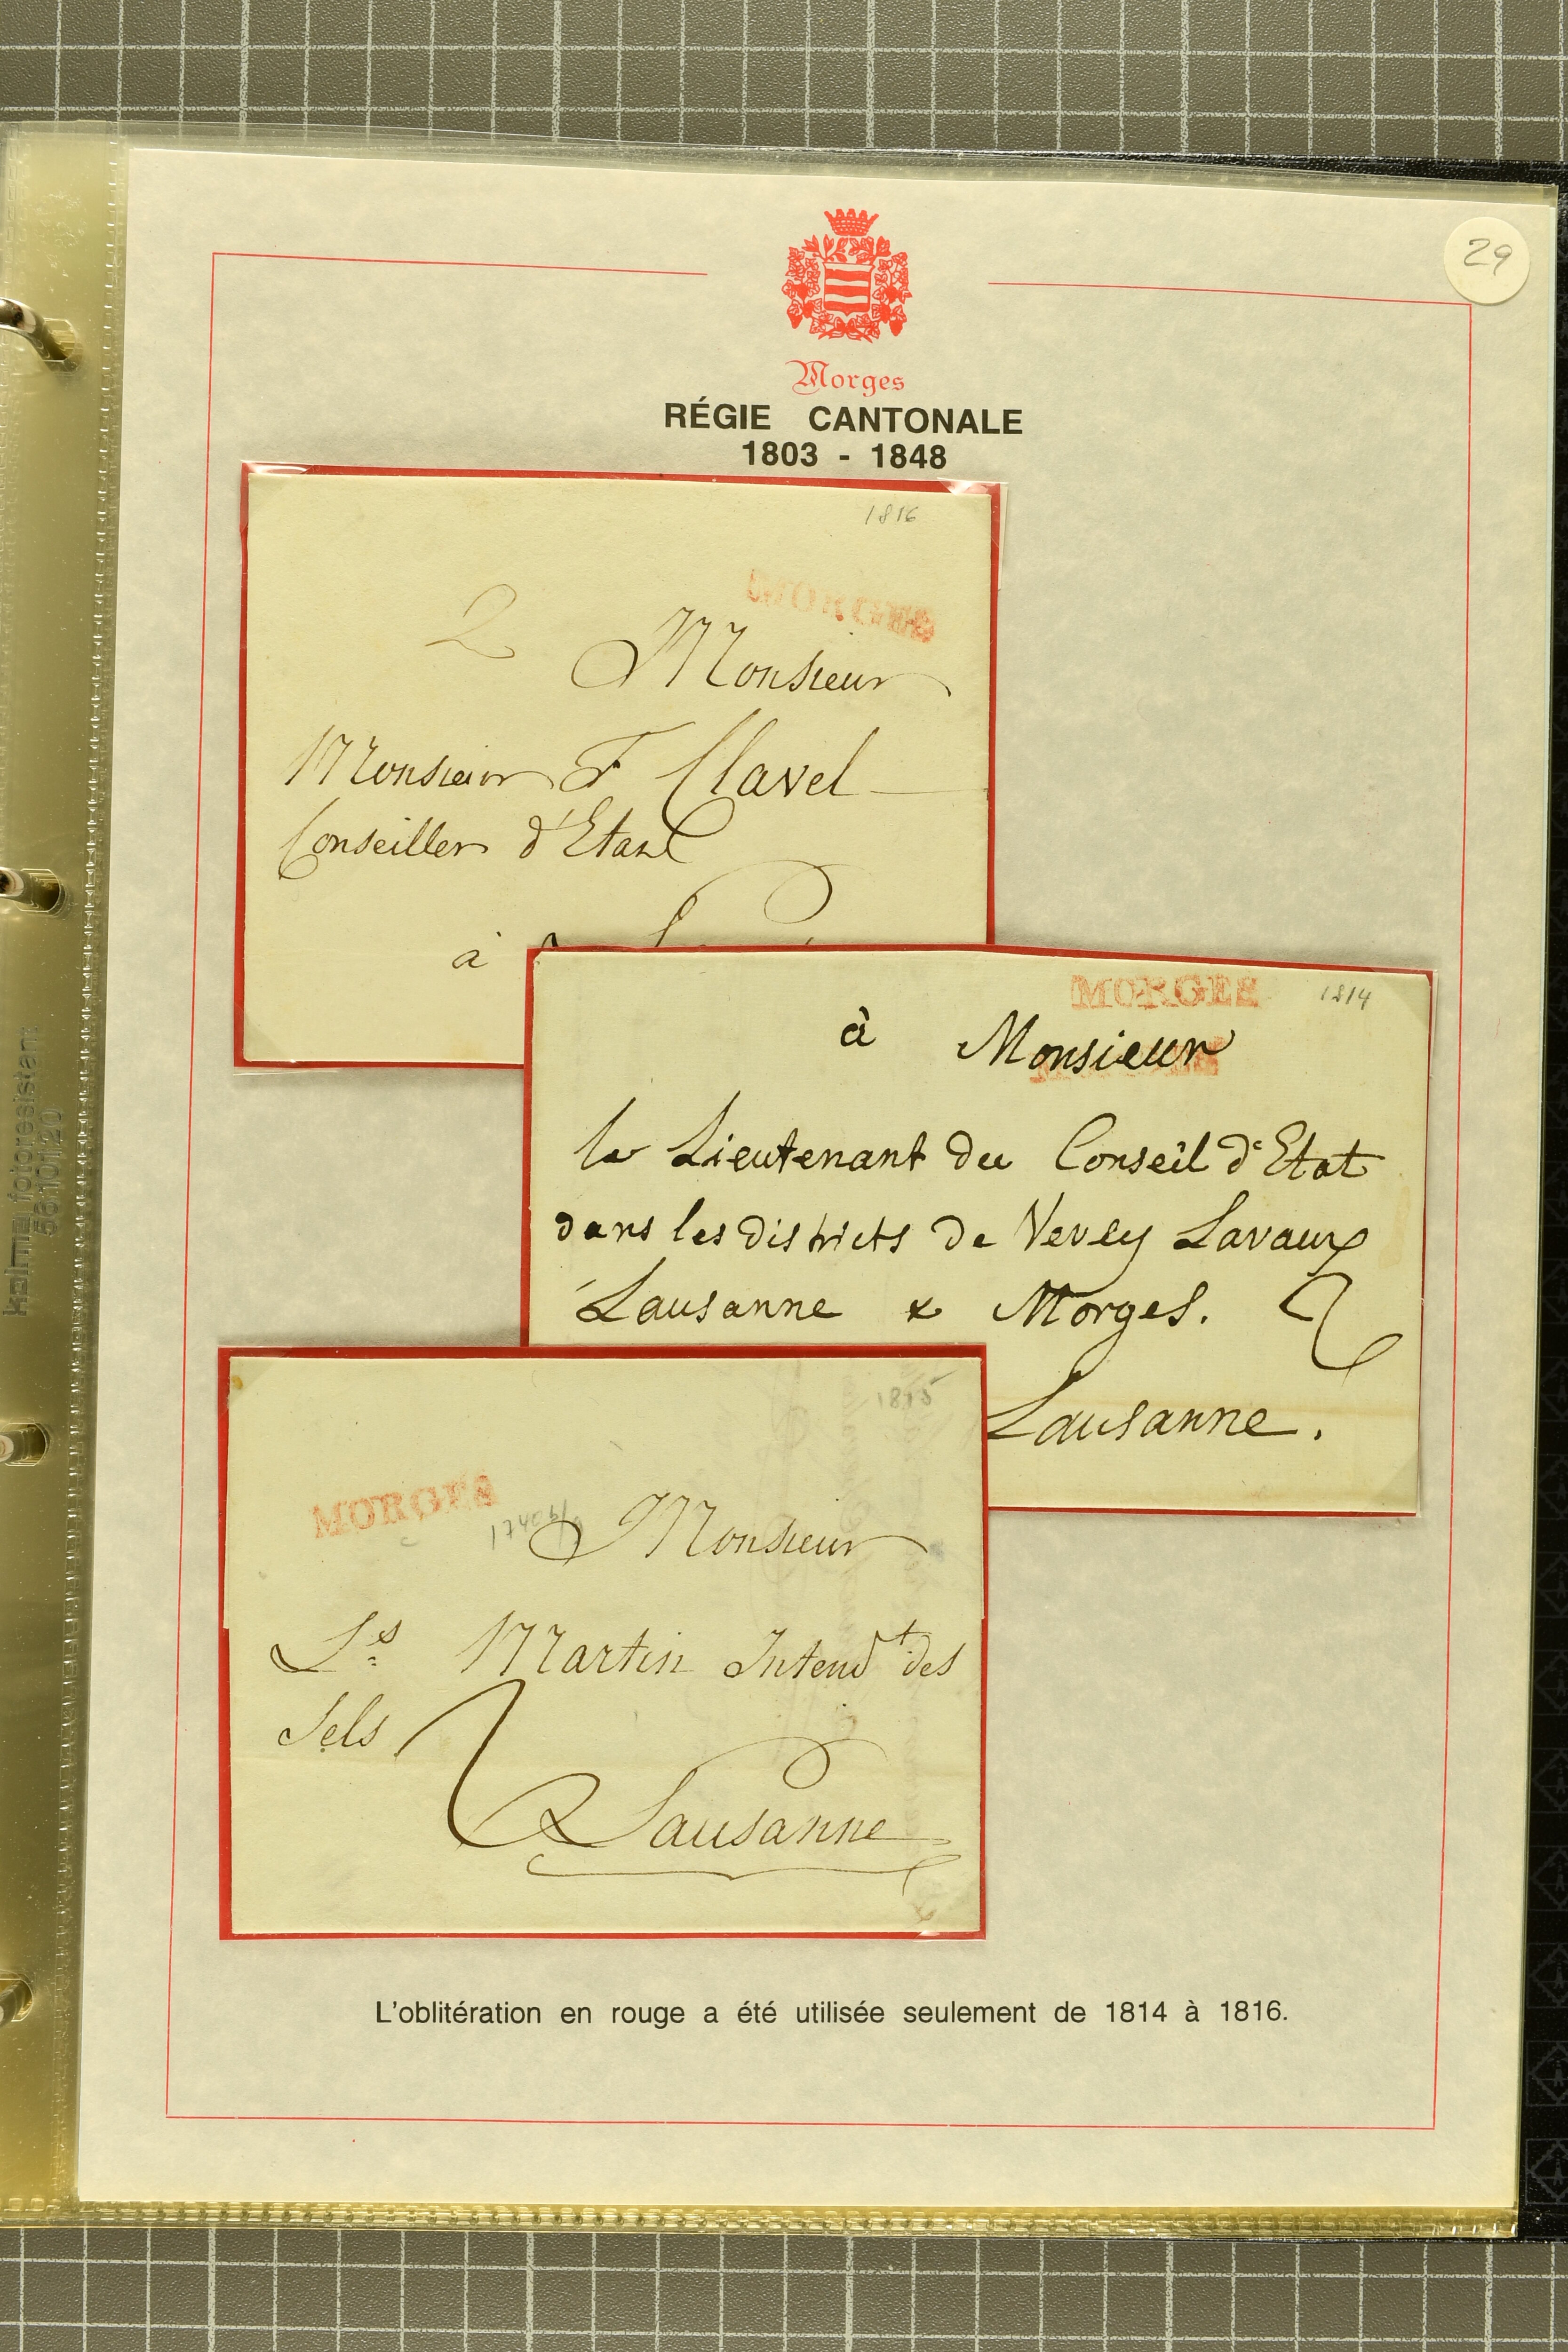 29
Morges
RÉGIE CANTONALE
1803 - 1848
1816
MORGES
2
Monsieur
Monsieur F Clavel
Conseiller d'Etat
à
MORGES
1814
à Monsieur
le Lieutenant du Conseil d'Etat
dans les districts de Vevey Lavaux
Lausanne & Morges.
Lausanne.
1815
MORGES
Monsieur
Ls Martin Intendt des
Sels
Lausanne
L'oblitération en rouge a été utilisée seulement de 1814 à 1816.
kalma fotoresistant